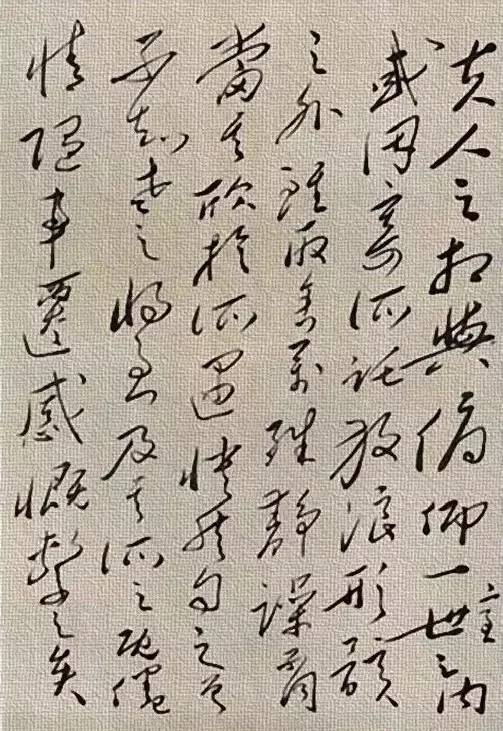 夫人之相與俯仰一世之内
一室
或因寄所託放浪形骸
之外雖取舍萬殊靜躁不同
當其欣於所遇快然自足
不知老之將至及其所之既倦
情隨事遷感慨繫之矣